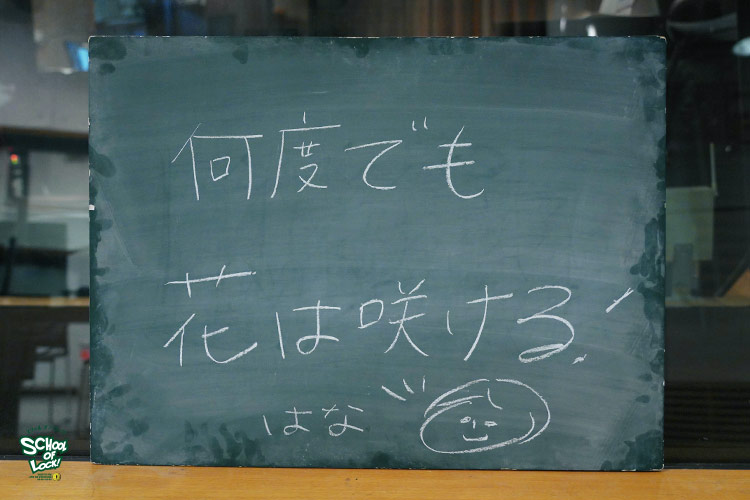 何度でも
花は咲ける!
はな
SCHOOL OF LOCK!